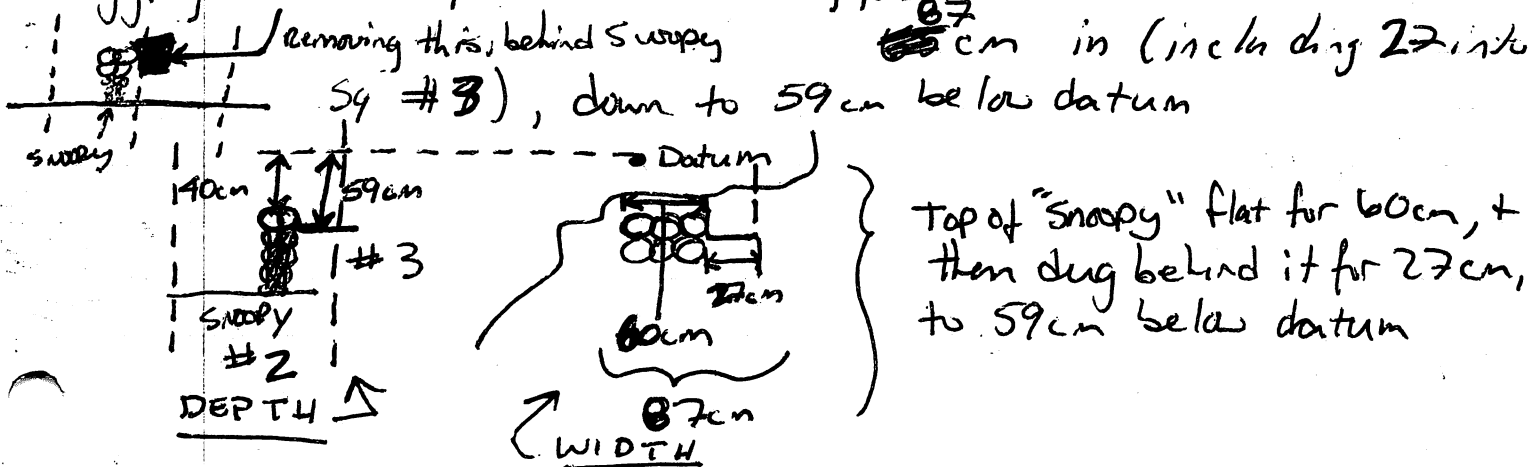 87
Removing this, behind Snoopy cm in (including 27 into
Sq #3), down to 59cm below datum
SNOOPY
Datum
40cm 59cm
#3
SNOOPY
#2
DEPTH
27cm
60cm
87cm
WIDTH
Top of "Snoopy" flat for 60cm, +
then dug behind it for 27cm,
to 59cm below datum